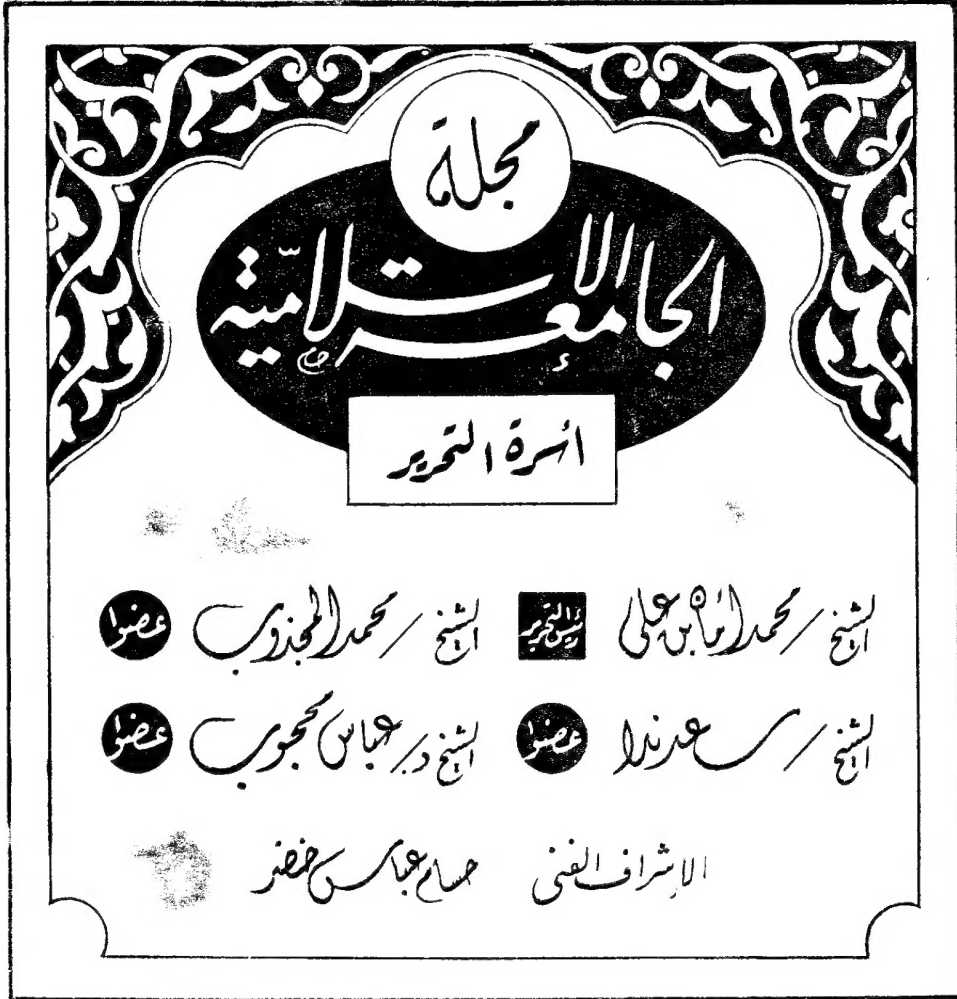 مجلة
الجامعة الإسلامية
أسرة التحرير
الشيخ / محمد أمان بن علي رئيس التحرير الشيخ / محمد المجذوب عضوا
الشيخ / سعد ندا عضوا الشيخ د / عباس محجوب عضوا
الإشراف الفني حسام عباس خضر